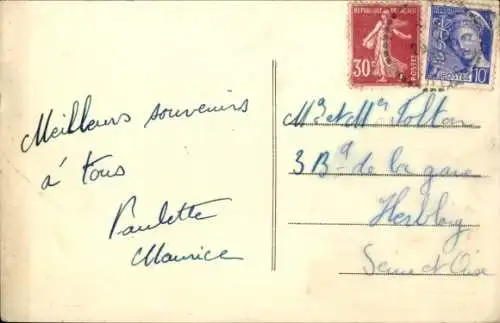 Meilleurs souvenirs
à tous
Paulette
Maurice
30c
POSTES
POSTES 10c
Mr et Me Foltan
3 Bd de la gare
Herblay
Seine et Oise